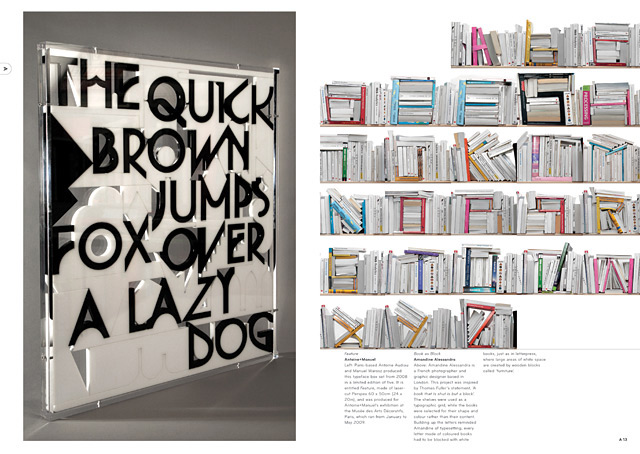 THE QUICK
BROWN
JUMPS
FOX OVER
A LAZY
DOG
Feature
Antoine+Manuel
Left: Paris-based Antoine Audiau
and Manuel Warosz produced
this typeface box set from 2008
in a limited edition of five. It is
entitled Feature, made of laser-
cut Perspex 60 x 50cm (24 x
20in), and was produced for
Antoine+Manuel's exhibition at
the Musée des Arts Décoratifs,
Paris, which ran from January to
May 2009.
Book as Block
Amandine Alessandra
Above: Amandine Alessandra is
a French photographer and
graphic designer based in
London. This project was inspired
by Thomas Fuller's statement, 'A
book that is shut is but a block'.
The shelves were used as a
typographic grid, while the books
were selected for their shape and
colour rather than their content.
Building up the letters reminded
Amandine of typesetting; every
letter made of coloured books
had to be blocked with white
books, just as in letterpress,
where large areas of white space
are created by wooden blocks
called 'furniture'.
A 13